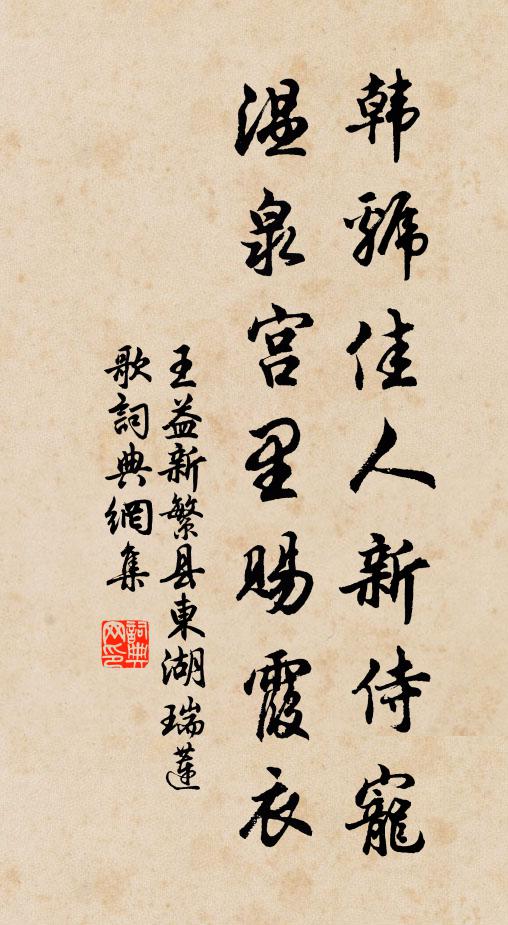 韩虢佳人新侍寵
温泉宫里賜霞衣
王益新繁县東湖瑞蓮
歌詞典網集
詞典網印